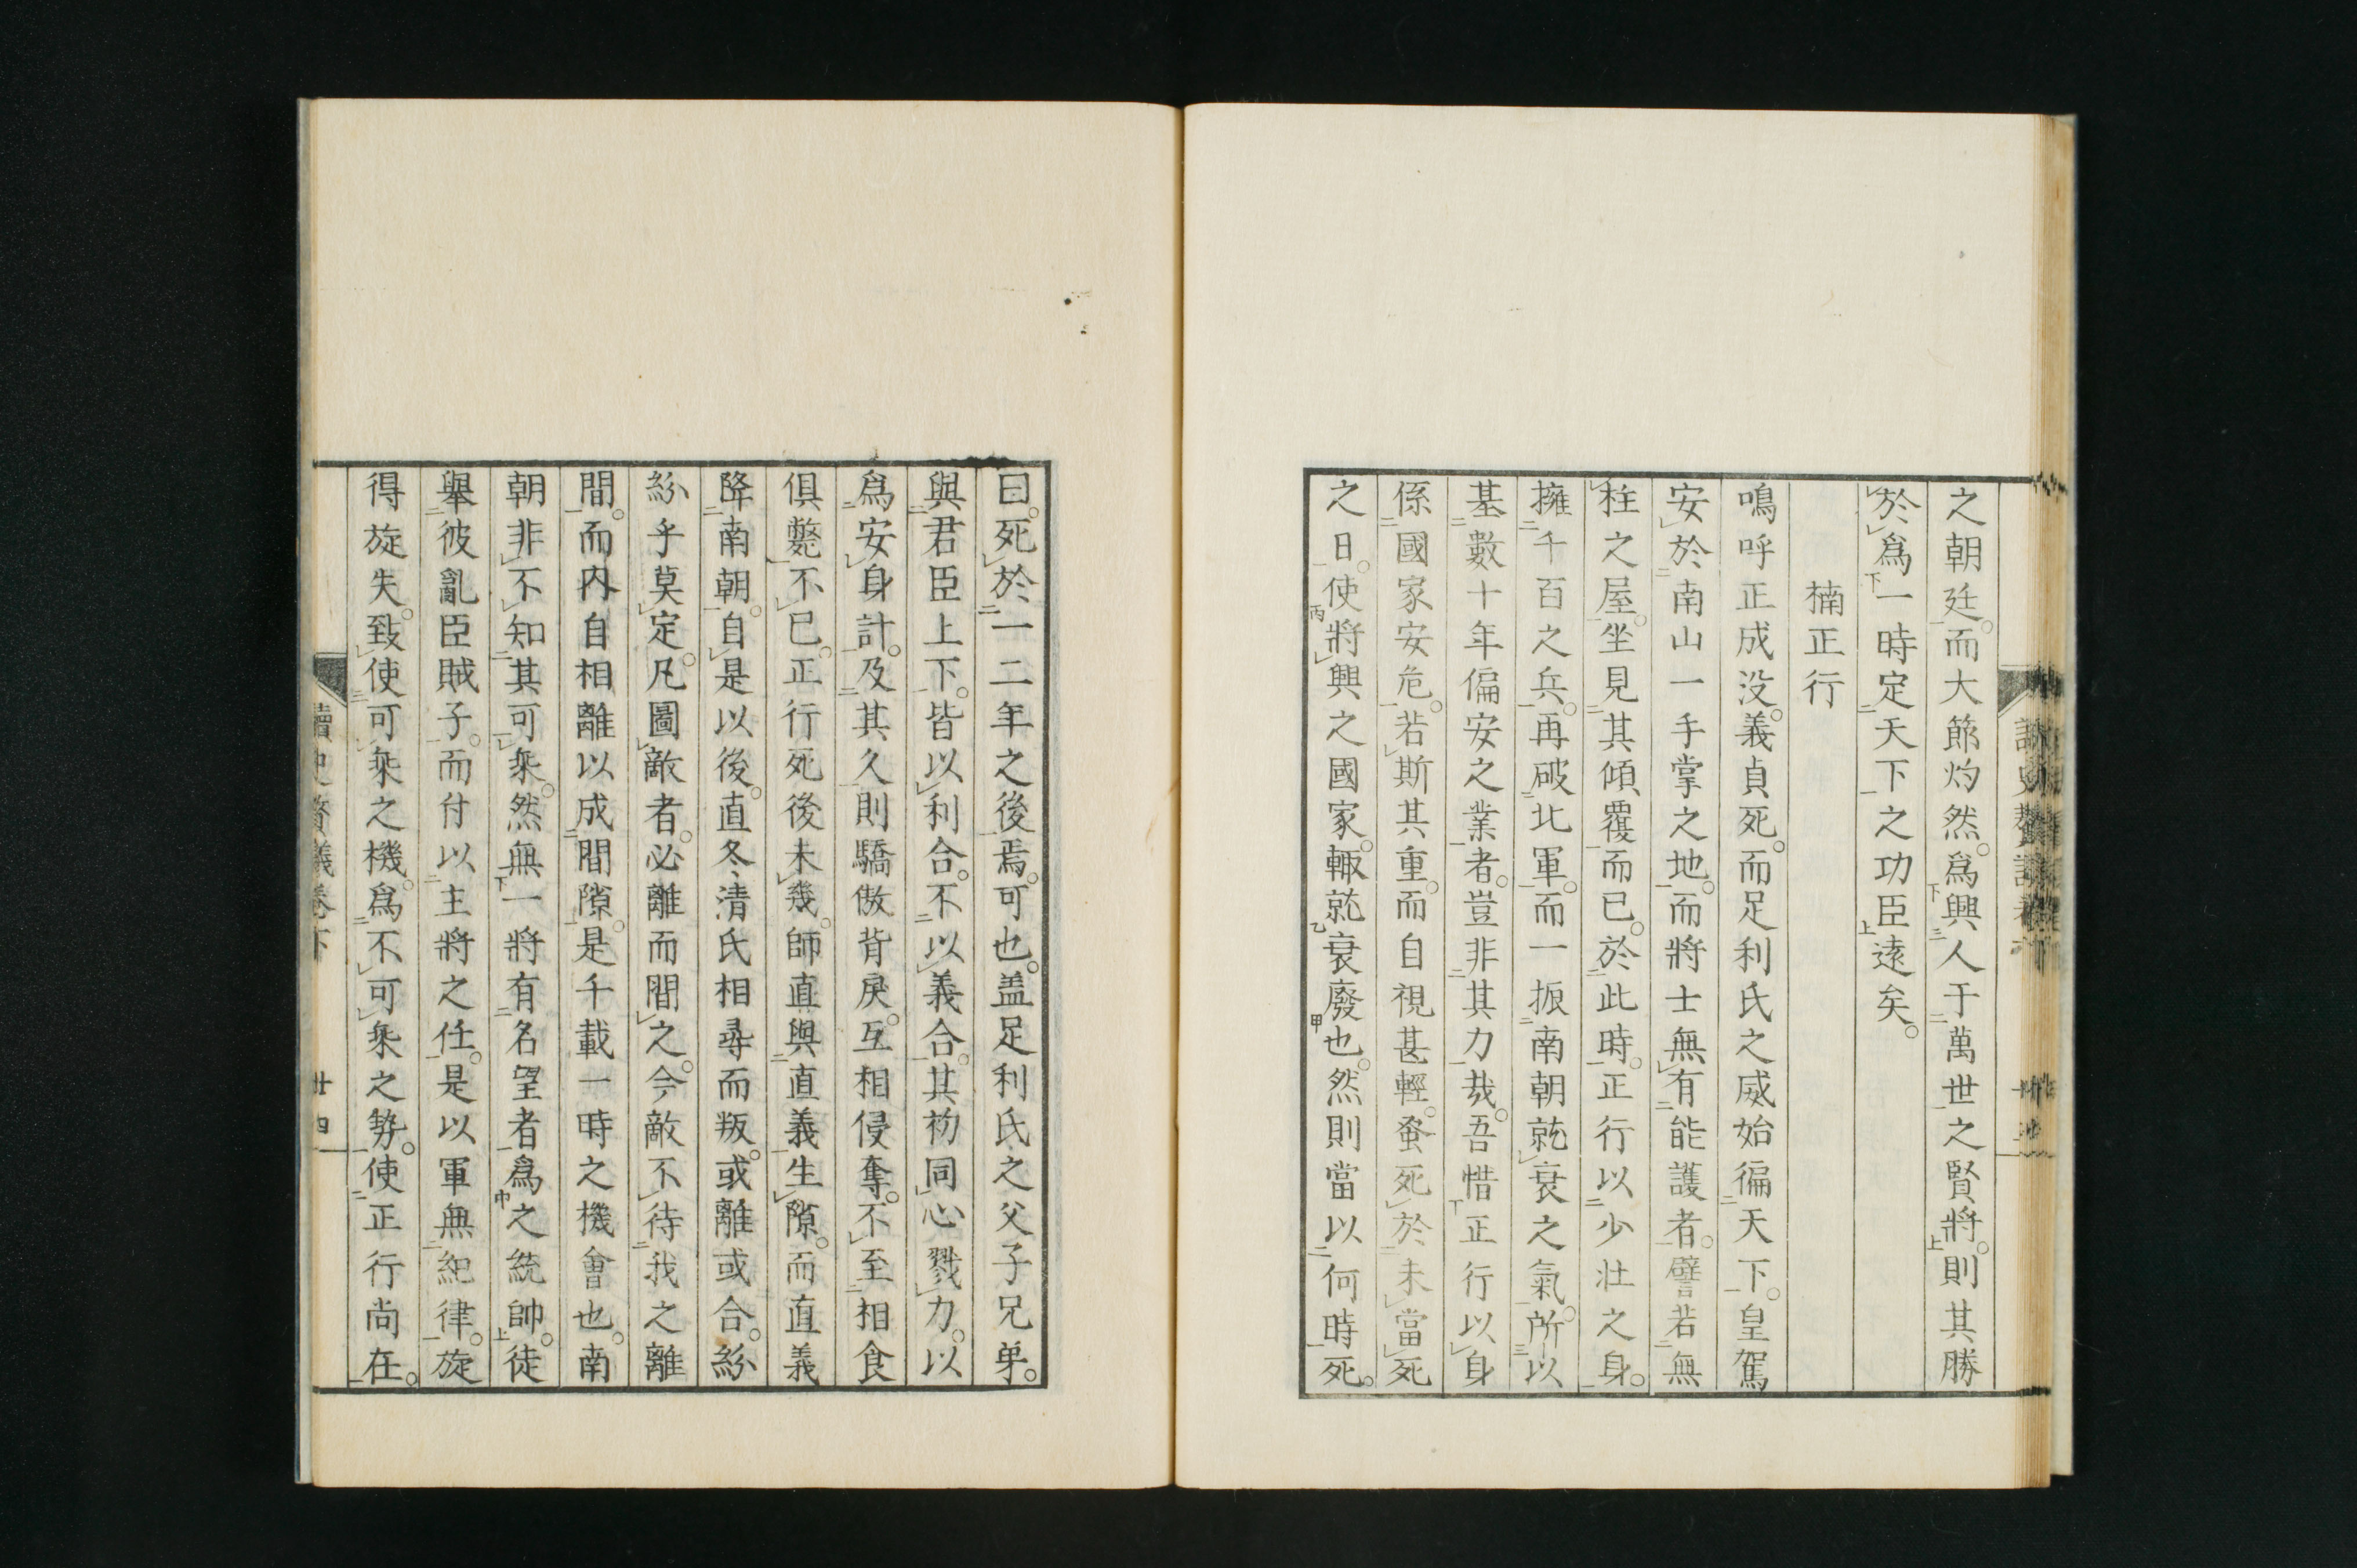 之朝廷。而大節灼然。爲興人于萬世之賢將。則其勝
於爲一時定天下之功臣遠矣。
楠正行
嗚呼正成没。義貞死。而足利氏之威始徧天下。皇駕
安於南山一手掌之地。而將士無有能護者。譬若無
柱之屋。坐見其傾覆而已。於此時。正行以少壯之身。
擁千百之兵。再破北軍。而一振南朝就衰之氣。所以
基數十年偏安之業者。豈非其力哉。吾惜正行以身
係國家安危。若斯其重。而自視甚輕。蚤死於未當死
之日。使將興之國家。輙就衰廢也。然則當以何時死。
曰。死於一二年之後焉。可也。盖足利氏之父子兄弟。
與君臣上下。皆以利合。不以義合。其初同心戮力。以
爲安身計。及其久則驕傲背戾。互相侵奪。不至相食
俱斃不已。正行死後未幾。師直與直義生隙。而直義
降南朝。自是以後。直冬清氏相尋而叛。或離或合。紛
紛乎莫定。凡圖敵者。必離而間之。今敵不待我之離
間。而内自相離以成間隙。是千載一時之機會也。南
朝非不知其可乘。然無一將有名望者爲之統帥。徒
舉彼亂臣賊子。而付以主將之任。是以軍無紀律。旋
得旋失。致使可乘之機。爲不可乘之勢。使正行尚在。
讀史贅議卷下
廿四